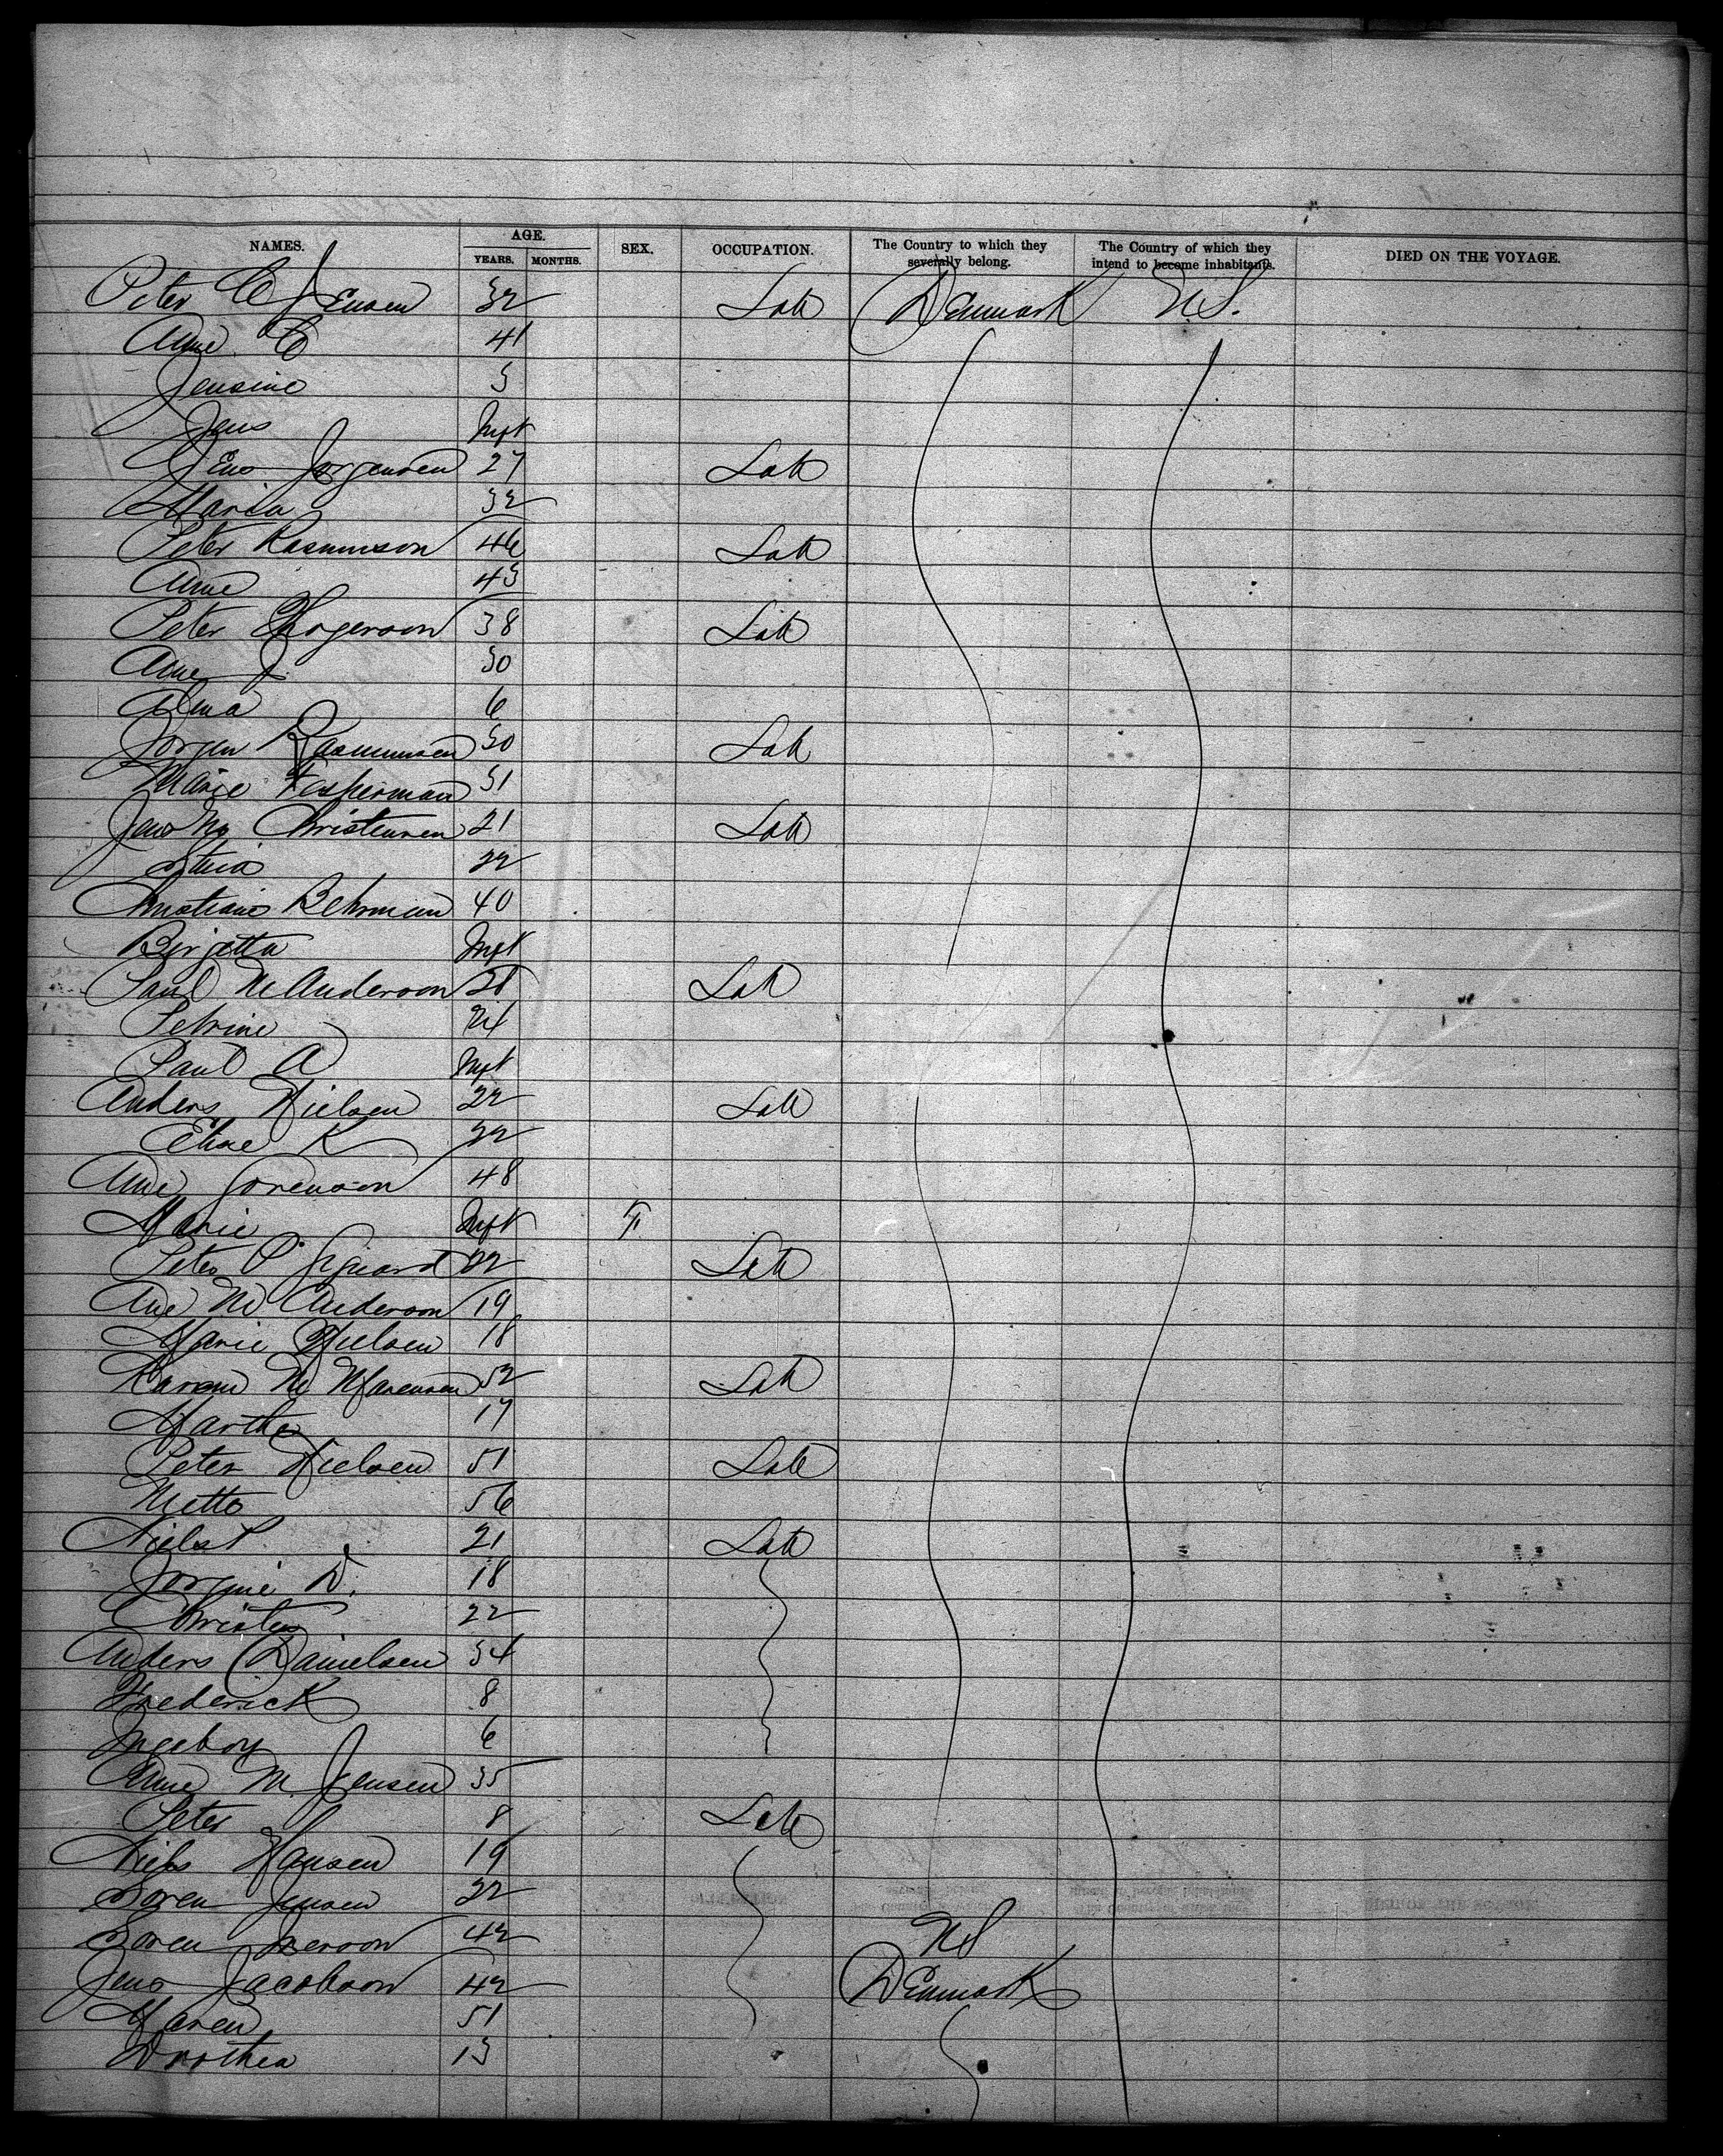 NAMES. AGE. YEARS. MONTHS. SEX. OCCUPATION. The Country to which they severally belong. The Country of which they intend to become inhabitants. DIED ON THE VOYAGE.
Peter C Jensen 32 Lab Denmark U.S.
Anne C 41
Jensine 3
Jens Inft
Jens Jorgensen 27 Lab
Maria 32
Peter Rasmuson 46 Lab
Anne 43
Peter 38 Lab
Ane J 30
Alma 6
Jorgen Rasmussen 30 Lab
Marie 31
Jens Christensen 21 Lab
22
Christiane Behrman 40
Birjetta Inft
Paul M Anderson 28 Lab
Petrine 24
Paul A Inft
Anders Nielsen 22 Lab
Eline K 32
Ane Sorenson 48
Marie Inft F
Peter P. 22 Lab
Ane M Anderson 19
Marie Nielsen 18
M 52 Lab
Marthe 17
Peter Nielsen 51 Lab
Mette 56
Niels P. 21 Lab
Jorgine D. 18
Christen 22
Anders Danielsen 34
Frederick 8
Ingeborg 6
Anne M Jensen 35
Peter 8 Lab
Niels Hansen 19
Soren Jensen 22
Soren Iverson 42 US
Jens Jacobson 42 Denmark
Maren 51
Dorthea 13